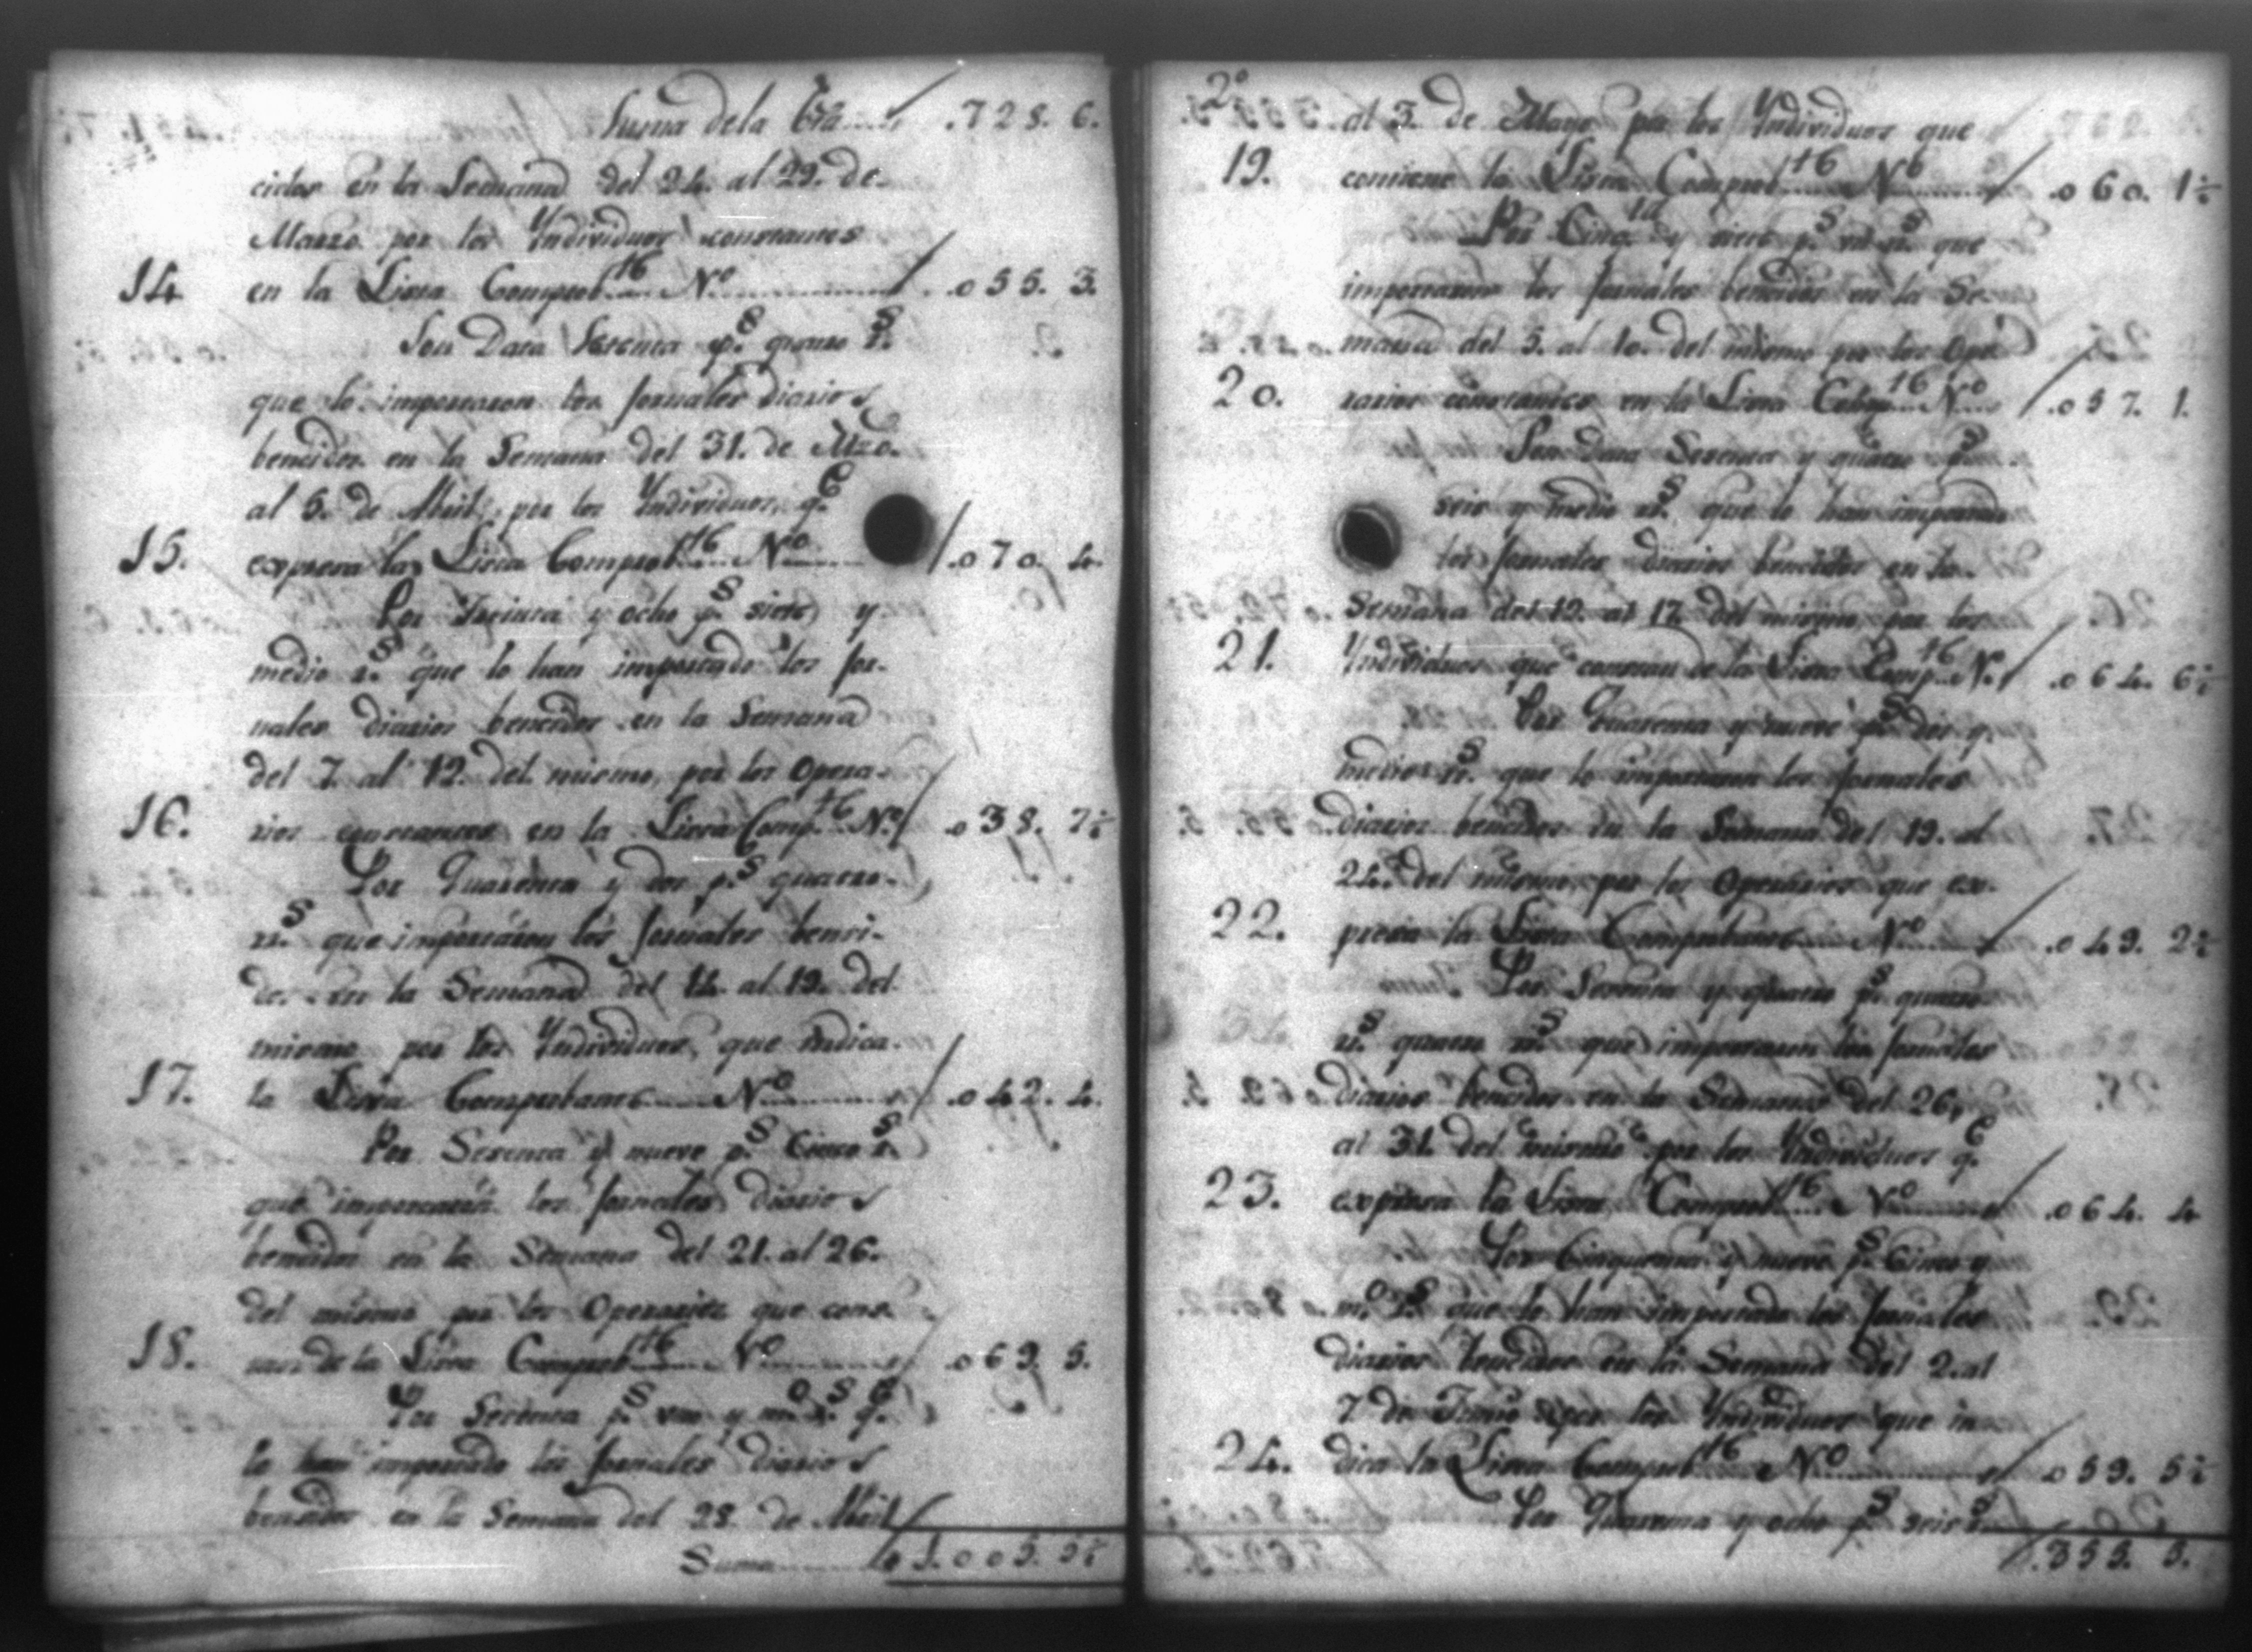 Suma dela Bta .728. 6.
cidos en la Semana del 24. al 29. de
Marzo por los Yndividuos constantes
14. en la Lista Comprob.te Nº .055. 3.
Son Data Setenta p.s quatro r.s
que lo importaron los Jornales diarios
bencidos en la Semana del 31. de Mzo.
al 5. de Abril, por los Yndividuos, q.e
15. expresa la Lista Comprob.te Nº .070. 4.
Por Treinta y ocho p.s siete y
medio r.s que lo han importado los Jor-
nales diarios bencidos en la Semana
del 7. al 12. del mismo, por los Opera-
16. rios constantes en la Lista Comp.te Nº .038. 7½
Por Quarenta y dos p.s quatro
rr.s que importaron los Jornales benci-
dos en la Semana del 14. al 19. del
mismo por los Yndividuos, que indica
17. la Lista Comprobante Nº .042. 4.
Por Sesenta y nueve p.s Cinco r.s
que importaron los Jornales diarios
bencidos en la Semana del 21. al 26.
del mismo por los Operarios que cons-
18. tan de la Lista Comprob.te Nº .069. 5.
Por Sesenta p.s uno y m.o r.s q.e
lo han importado los Jornales diarios
bencidos en la Semana del 28. de Abril
Suma 1.005. 5½
2º
al 3. de Mayo por los Yndividuos que
19. contiene la Lista Comprob.te Nº .060. 1½
Por Cinq.ta y siete p.s un r.s que
importaron los Jornales bencidos en la Se-
mana del 5. al 10. del mismo por los Ope-
20. rarios constantes en la Lista Nº .057. 1.
Son Data Sesenta y quatro p.s
seis y medio rr.s que lo han importado
los Jornales diarios bencidos en la
Semana del 12. al 17. del mismo por los
21. Yndividuos que constan de la Lista Comp.te Nº .064. 6½
Por Quarenta y nueve p.s dos y
medio rr.s que lo importaron los Jornales
diarios bencidos en la Semana del 19. al
24. del mismo, por los Operarios que ex-
22. presa la Lista Comprobante Nº .049. 2½
Por Sesenta y quatro p.s quatro
rr.s quatro rr.s que importaron los Jornales
diarios bencidos en la Semana del 26.
al 31. del mismo por los Yndividuos q.e
23. expresa la Lista Comprob.te Nº .064. 4
Por Cinquenta y nueve p.s Cinco y
m.o r.s que lo han importado los Jornales
diarios bencidos en la Semana del 2. al
7 de Junio por los Yndividuos que in-
24. dica la Lista Comprob.te Nº .059. 5½
Por Quarenta y ocho p.s seis r.s
.355. 5.